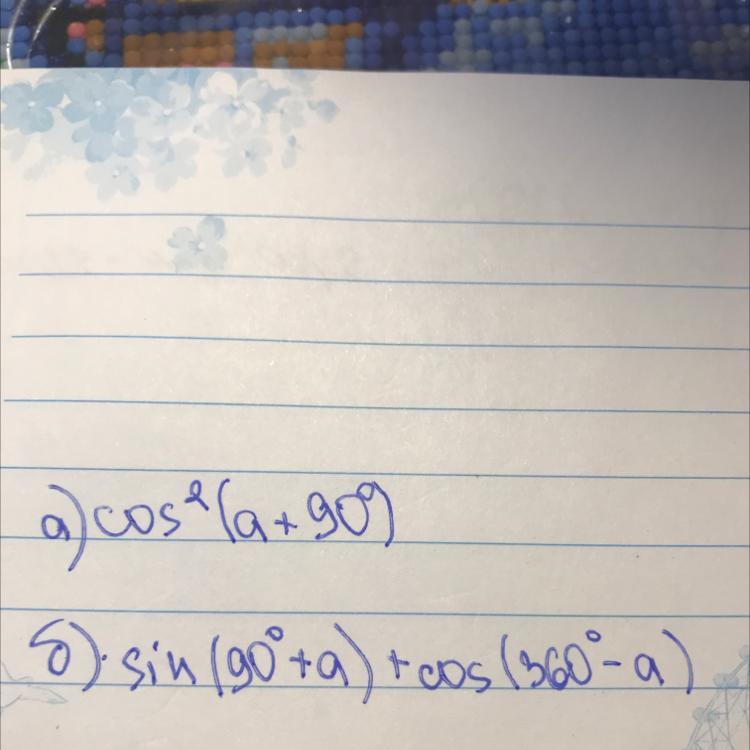 а) cos²(a+90°)
б) sin(90°+a)+cos(360°-a)